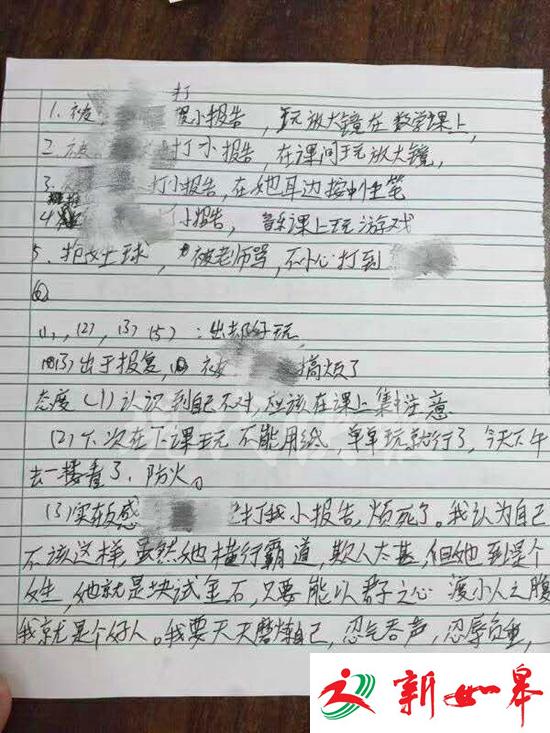 打
1. 被 小报告，玩放大镜在数学课上，
2. 被 打小报告，在课间玩放大镜，
3. 打小报告，在她耳边按中性笔
4. 打小报告，音乐课上玩游戏
5. 抢 球，被老师骂，不小心打到
(1), (2), (3) (5)：出 好玩
(3)出于报复， 被 搞烦了
态度(1)认识到自己不对，应该在课上集中注意
(2)下次在下课玩不能用纸，单单玩就行了，今天下午
去一楼看了，防火。
(3)实在反感 打我小报告，烦死了。我认为自己
不该这样，虽然她横行霸道，欺人太甚，但她到是个
女生，她就是块试金石，只要能以君子之心 渡小人之腹
我就是个好人。我要天天磨炼自己，忍气吞声，忍辱负重，
新如皋